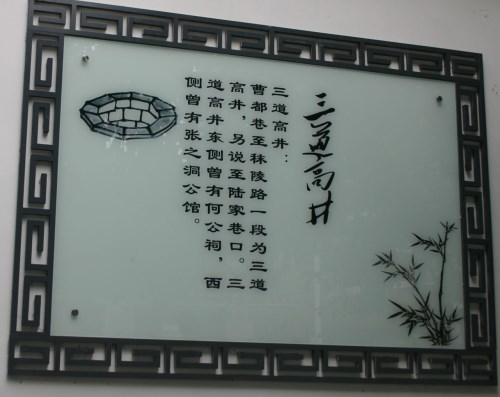 三道高井
三道高井：
曹都巷至秣陵路一段为三道
高井，另说至陆家巷口。三
道高井东侧曾有何公祠，西
侧曾有张之洞公馆。